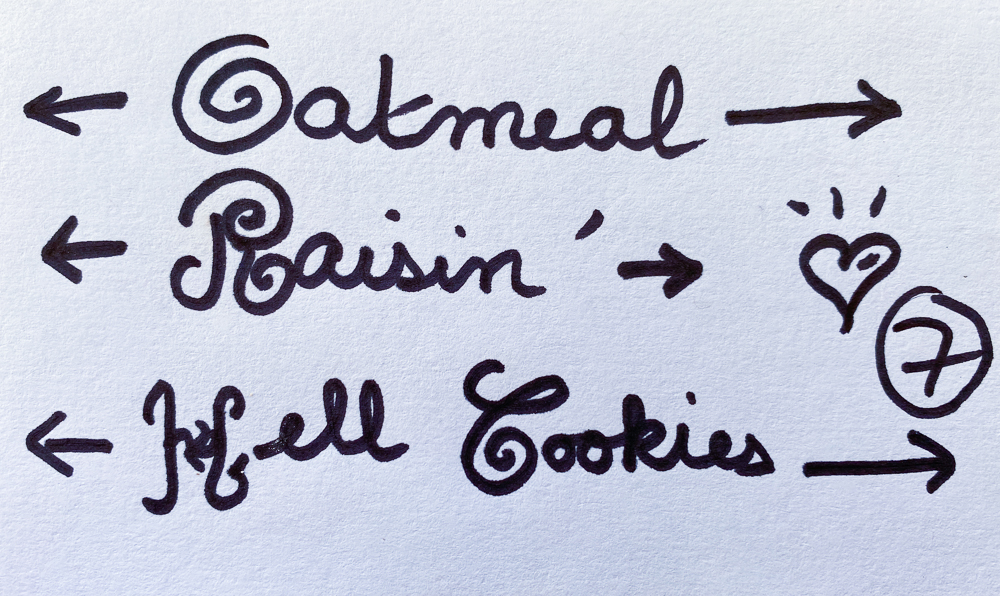 ← Oatmeal →
← Raisin' → ♡
7
← Hell Cookies →